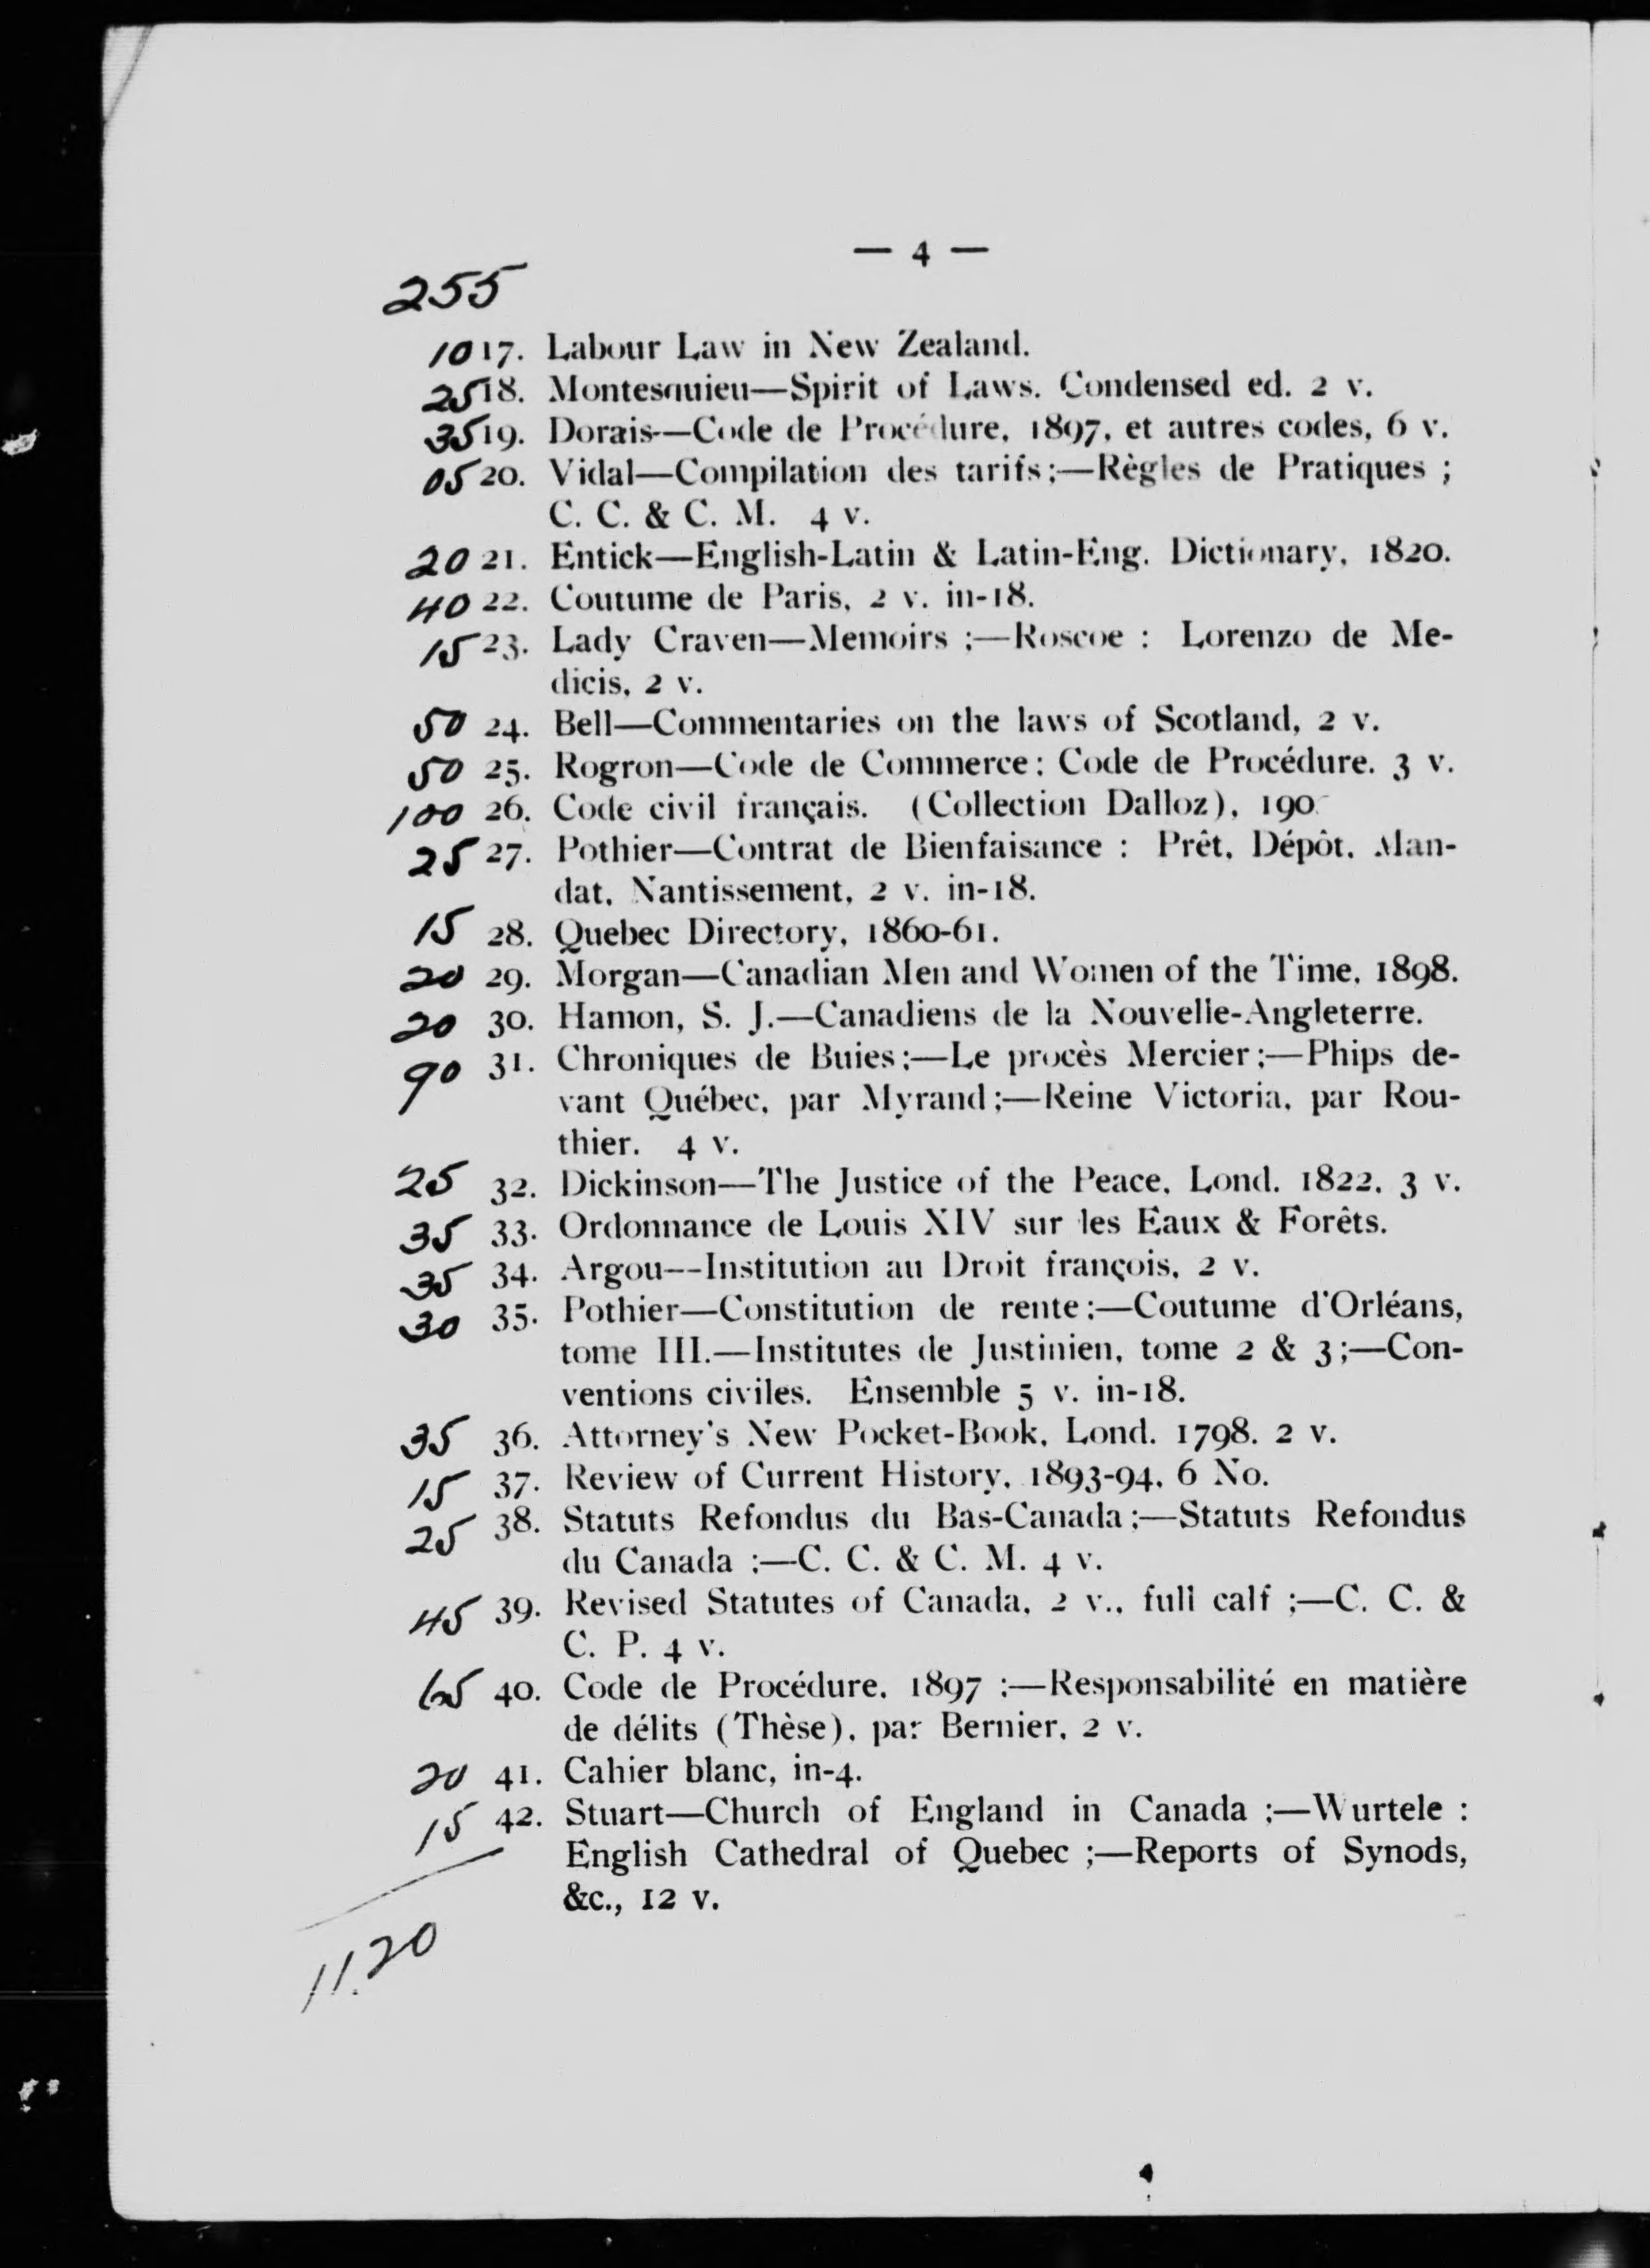 — 4 —
255
10 17. Labour Law in New Zealand.
25 18. Montesquieu—Spirit of Laws. Condensed ed. 2 v.
35 19. Dorais—Code de Procédure, 1897, et autres codes, 6 v.
05 20. Vidal—Compilation des tarifs;—Règles de Pratiques ;
C. C. & C. M. 4 v.
20 21. Entick—English-Latin & Latin-Eng. Dictionary, 1820.
40 22. Coutume de Paris, 2 v. in-18.
15 23. Lady Craven—Memoirs ;—Roscoe : Lorenzo de Me-
dicis, 2 v.
50 24. Bell—Commentaries on the laws of Scotland, 2 v.
50 25. Rogron—Code de Commerce; Code de Procédure. 3 v.
100 26. Code civil français. (Collection Dalloz),
25 27. Pothier—Contrat de Bienfaisance : Prêt, Dépôt, Man-
dat, Nantissement, 2 v. in-18.
15 28. Quebec Directory, 1860-61.
20 29. Morgan—Canadian Men and Women of the Time, 1898.
20 30. Hamon, S. J.—Canadiens de la Nouvelle-Angleterre.
90 31. Chroniques de Buies;—Le procès Mercier;—Phips de-
vant Québec, par Myrand;—Reine Victoria, par Rou-
thier. 4 v.
25 32. Dickinson—The Justice of the Peace, Lond. 1822, 3 v.
35 33. Ordonnance de Louis XIV sur les Eaux & Forêts.
35 34. Argou—Institution au Droit françois, 2 v.
30 35. Pothier—Constitution de rente;—Coutume d'Orléans,
tome III.—Institutes de Justinien, tome 2 & 3;—Con-
ventions civiles. Ensemble 5 v. in-18.
35 36. Attorney's New Pocket-Book, Lond. 1798. 2 v.
15 37. Review of Current History, 1893-94, 6 No.
25 38. Statuts Refondus du Bas-Canada;—Statuts Refondus
du Canada ;—C. C. & C. M. 4 v.
45 39. Revised Statutes of Canada, 2 v., full calf ;—C. C. &
C. P. 4 v.
65 40. Code de Procédure, 1897 ;—Responsabilité en matière
de délits (Thèse), par Bernier, 2 v.
20 41. Cahier blanc, in-4.
15 42. Stuart—Church of England in Canada ;—Wurtele :
English Cathedral of Quebec ;—Reports of Synods,
&c., 12 v.
11.20